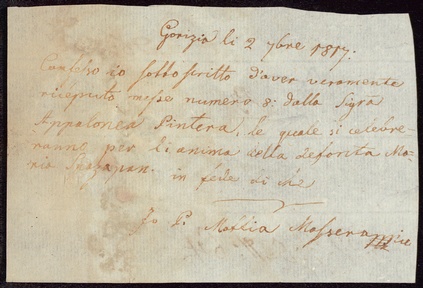 Gorizia li 2 ybre 1817.
Confesso io sottoscritto d'aver veramente
riceputo messe numero 8: dalla Sigra
Appalonea Pintera, le quale si celebre-
ranno per li anima della defonta Ma-
ria in fede di che
Io P. Mattia